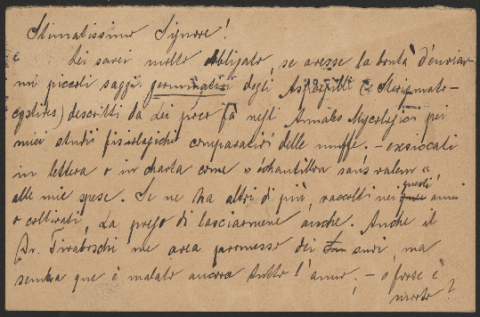 Stimatissimo Signore!
Lei sarei molto obbligato, se avesse la bontà d'inviar-
mi piccoli saggi germinabili degli Aspergilli (e Sterigmato-
cystides) descritti da Lei poco fa negli Annales Mycologici pei
miei studii fisiologichi comparativi delle muffe. – exsiccati
in lettera o in charta come "échantillon sans valeur"
alle mie spese. Se ne ha altri di più, raccolti nei questi anni
o coltivati, La prego di lasciarmene anche. Anche il
Dr. Tiraboschi me avea promesso dei suoi, ma
sembra que è malato ancora tutto l'anno; – o forse è
morto?